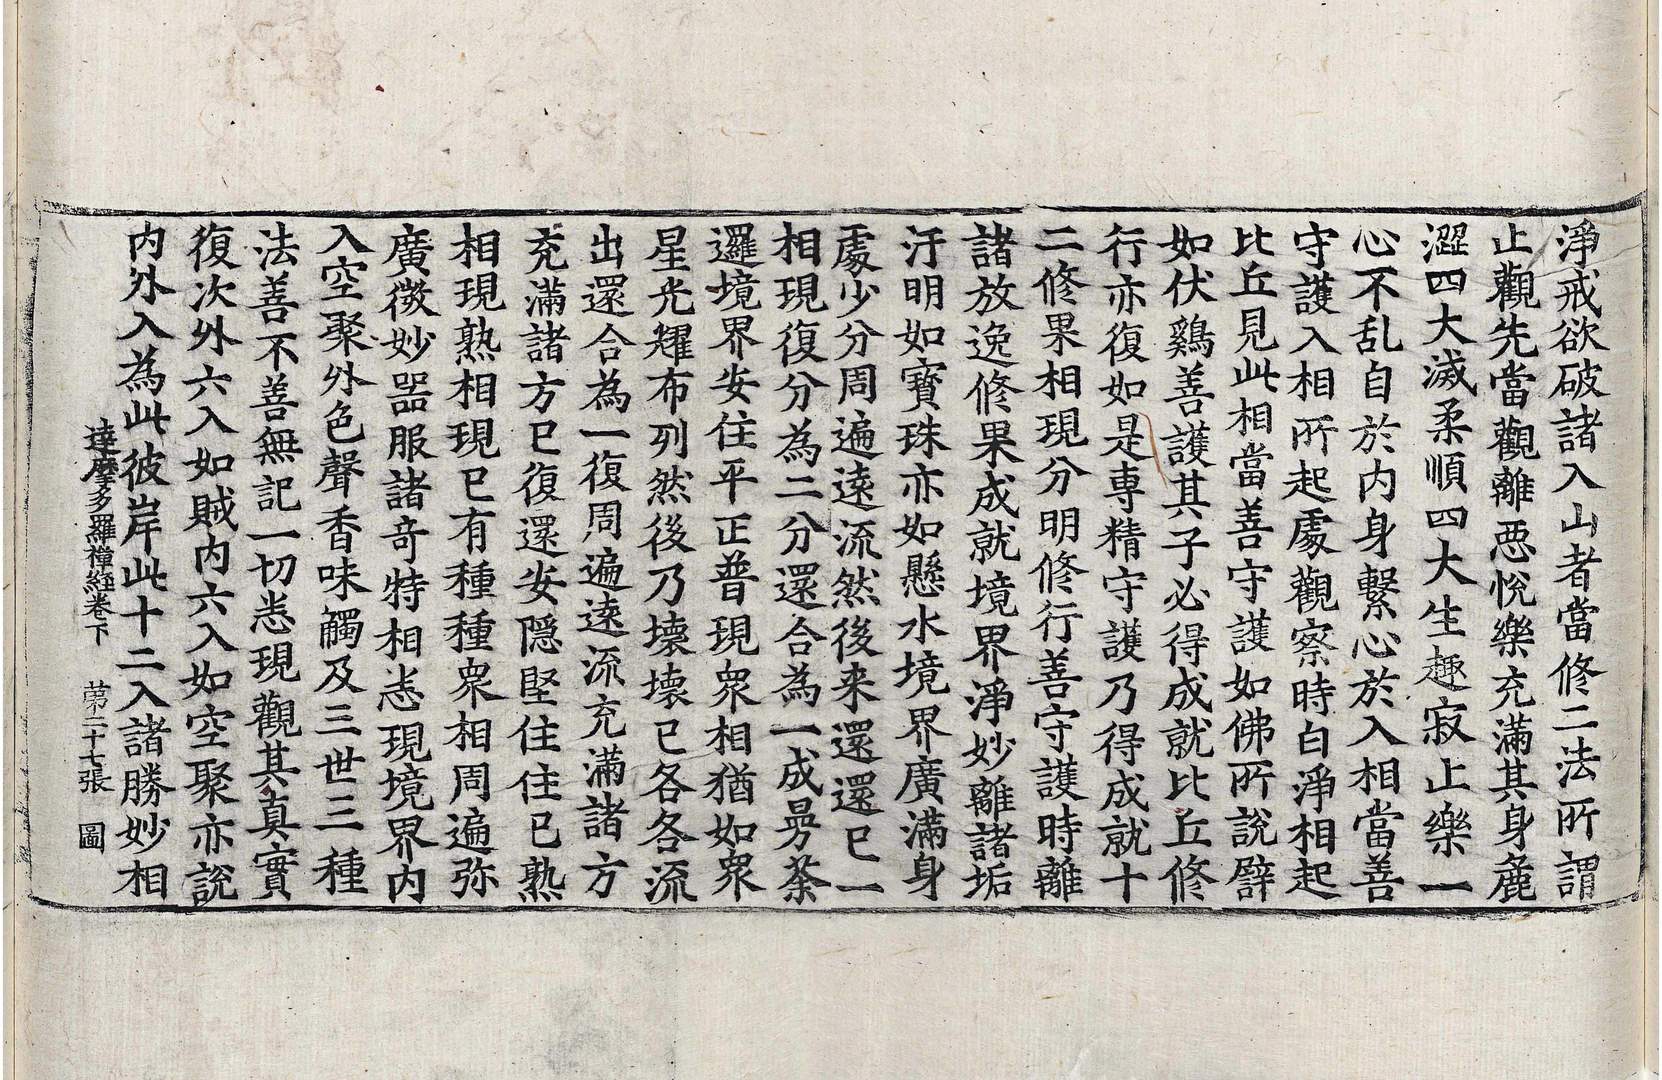 淨戒欲破諸入山者當修二法所謂
止觀先當觀離惡悅樂充滿其身麁
澀四大滅柔順四大生趣寂止樂一
心不乱自於内身繫心於入相當善
守護入相所起處觀察時白淨相起
比丘見此相當善守護如佛所說譬
如伏鷄善護其子必得成就比丘修
行亦復如是專精守護乃得成就十
二修果相現分明修行善守護時離
諸放逸修果成就境界淨妙離諸垢
汙明如寳珠亦如懸水境界廣滿身
處少分周遍遠流然後来還還已一
相現復分為二分還合為一成曼荼
邏境界安住平正普現衆相猶如衆
星光耀布列然後乃壞壞已各各流
出還合為一復周遍遠流充滿諸方
充滿諸方已復還安隠堅住住已熟
相現熟相現已有種種衆相周遍弥
廣微妙器服諸奇特相悉現境界内
入空聚外色聲香味觸及三世三種
法善不善無記一切悉現觀其真實
復次外六入如賊内六入如空聚亦說
内外入為此彼岸此十二入諸勝妙相
達摩多羅禪經卷下 第二十七張 圖